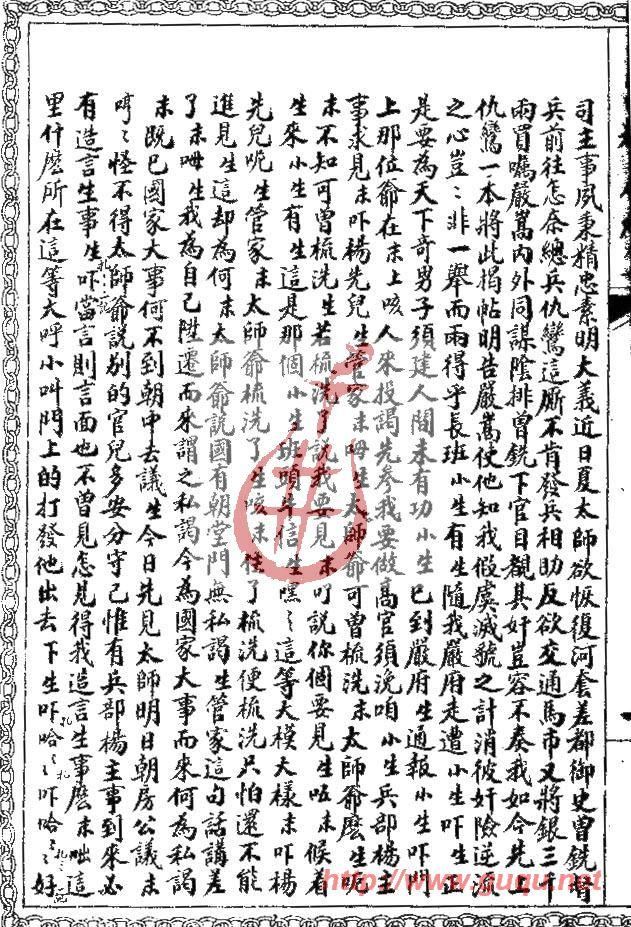 司主事夙秉精忠素明大義近日夏太師欲恢復河套差都御史曾銑
兵前往怎奈總兵仇鸞這厮不肯發兵相助反欲交通馬市又將銀三千
兩買囑嚴嵩內外同謀陰排曾銑下官目覩其奸豈容不奏我如今先上
仇鸞一本將此揭帖明告嚴嵩使他知我假虞滅虢之計消彼奸險逆
之心豈﹕非一舉而兩得乎長班小生有生隨我嚴府走遭小生吓生正
是要為天下奇男子須建人間未有功小生已到嚴府生通報小生吓門
上那位爺在末上咳人來投謁先參我要做高官須浼咱小生兵部楊主
事求見末吓楊先兒生管家末呣生太師爺可曾梳洗末太師爺麽生
末不知可曾梳洗生若梳洗了說我要見末吖說你個要見生咗末候着
生來小生有生這是那個小生班頭牛信生嘿﹕這等大模大樣末吓楊
先兒呢生管家末太師爺梳洗了生咳末住了梳洗便梳洗只怕還不能
進見生這却為何末太師爺說國有朝堂門無私謁生管家這句話講差
了末呣生我為自己陞遷而來謂之私謁今為國家大事而來何為私謁
末既已國家大事何不到朝中去議生今日先見太師明日朝房公議末
哼﹕怪不得太師爺說别的官兒多安分守己惟有兵部楊主事到來必
有造言生事生吓當言則言面也不曾見怎見得我造言生事麽末咄這
里什麽所在這等大呼小叫門上的打發他出去下生吓哈﹕吓哈﹕好
http://www.guqu.net